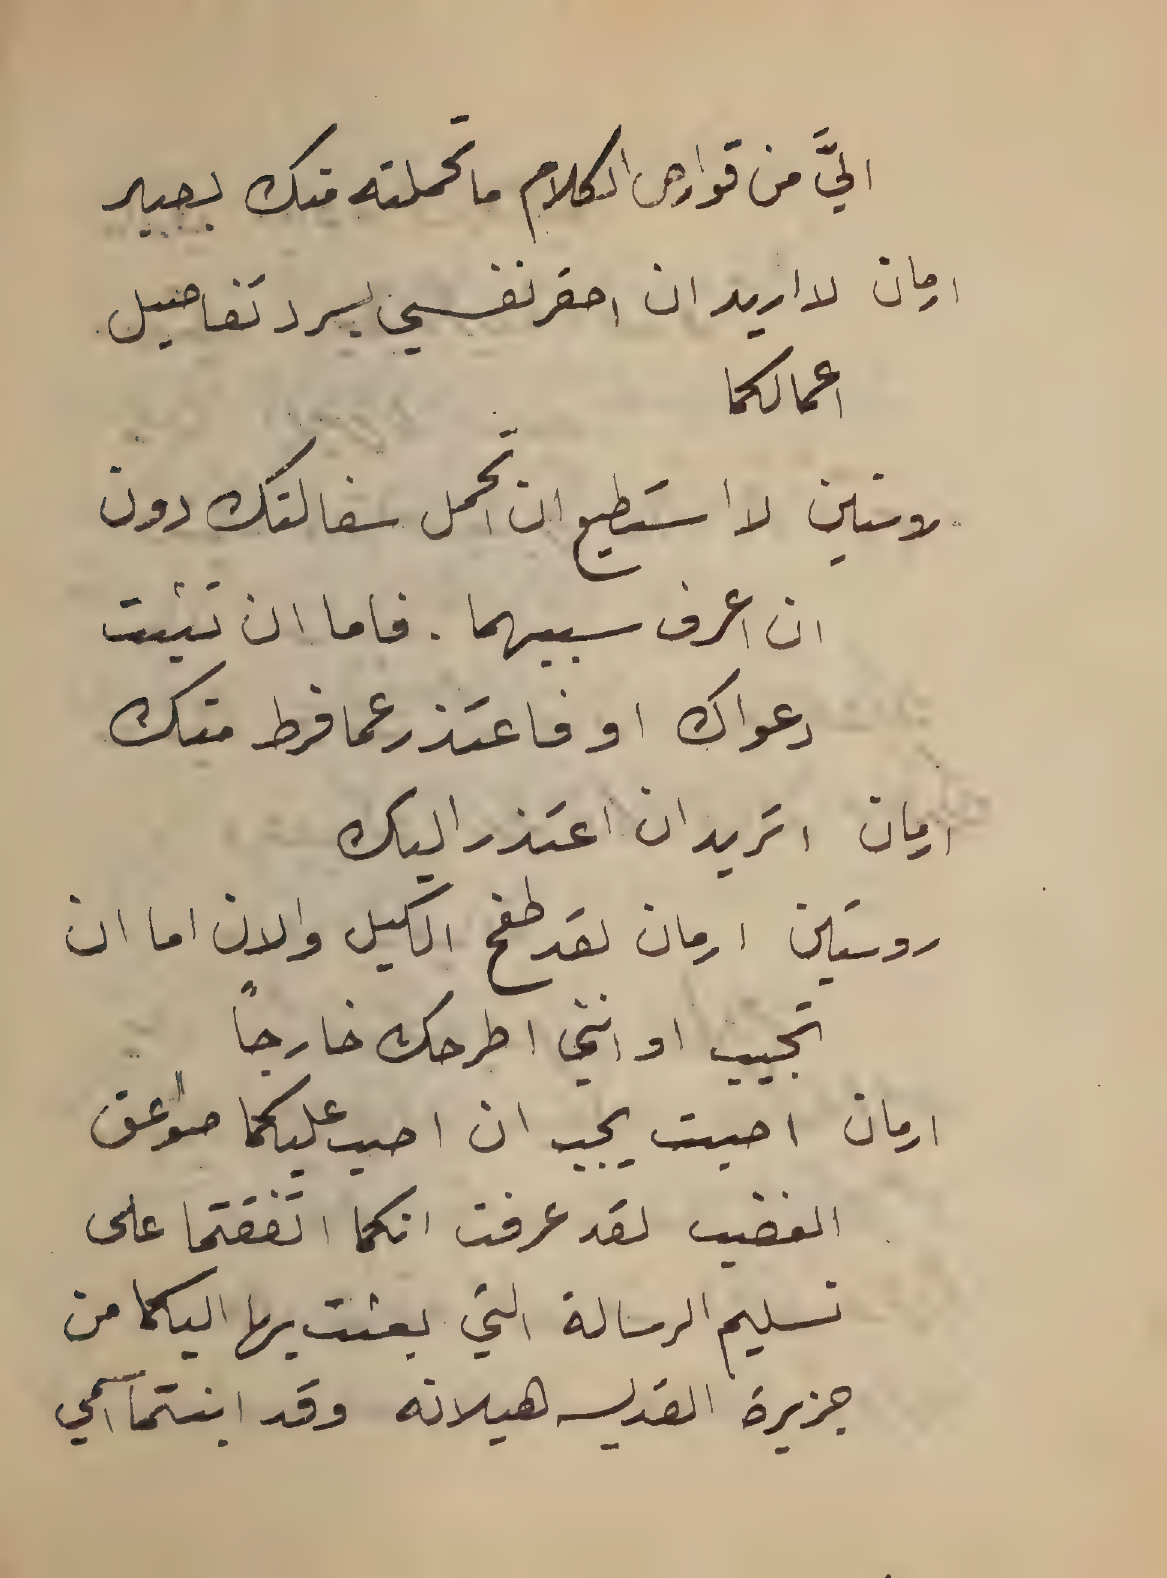 اليَّ من قوارص الكلام ما تحملته منك بصبر
ارمان لا اريد ان احقر نفسي بسرد تفاصيل
اعمالكما
روستين لا استطيع ان اتحمل سفالتك دون
ان اعرف سببهما . فاما ان تثبت
دعواك او فاعتذر عما فرط منك
ارمان اتريد ان اعتذر اليك
روستين ارمان لقد طفح الكيل والان اما ان
تجيب او انني اطرحك خارجاً
ارمان اصبت يجب ان اصب عليكما صواعق
الغضب لقد عرفت انكما اتفقتما على
تسليم الرسالة التي بعثت بها اليكما من
جزيرة القديسه هيلانه وقد ابنتما اسمي